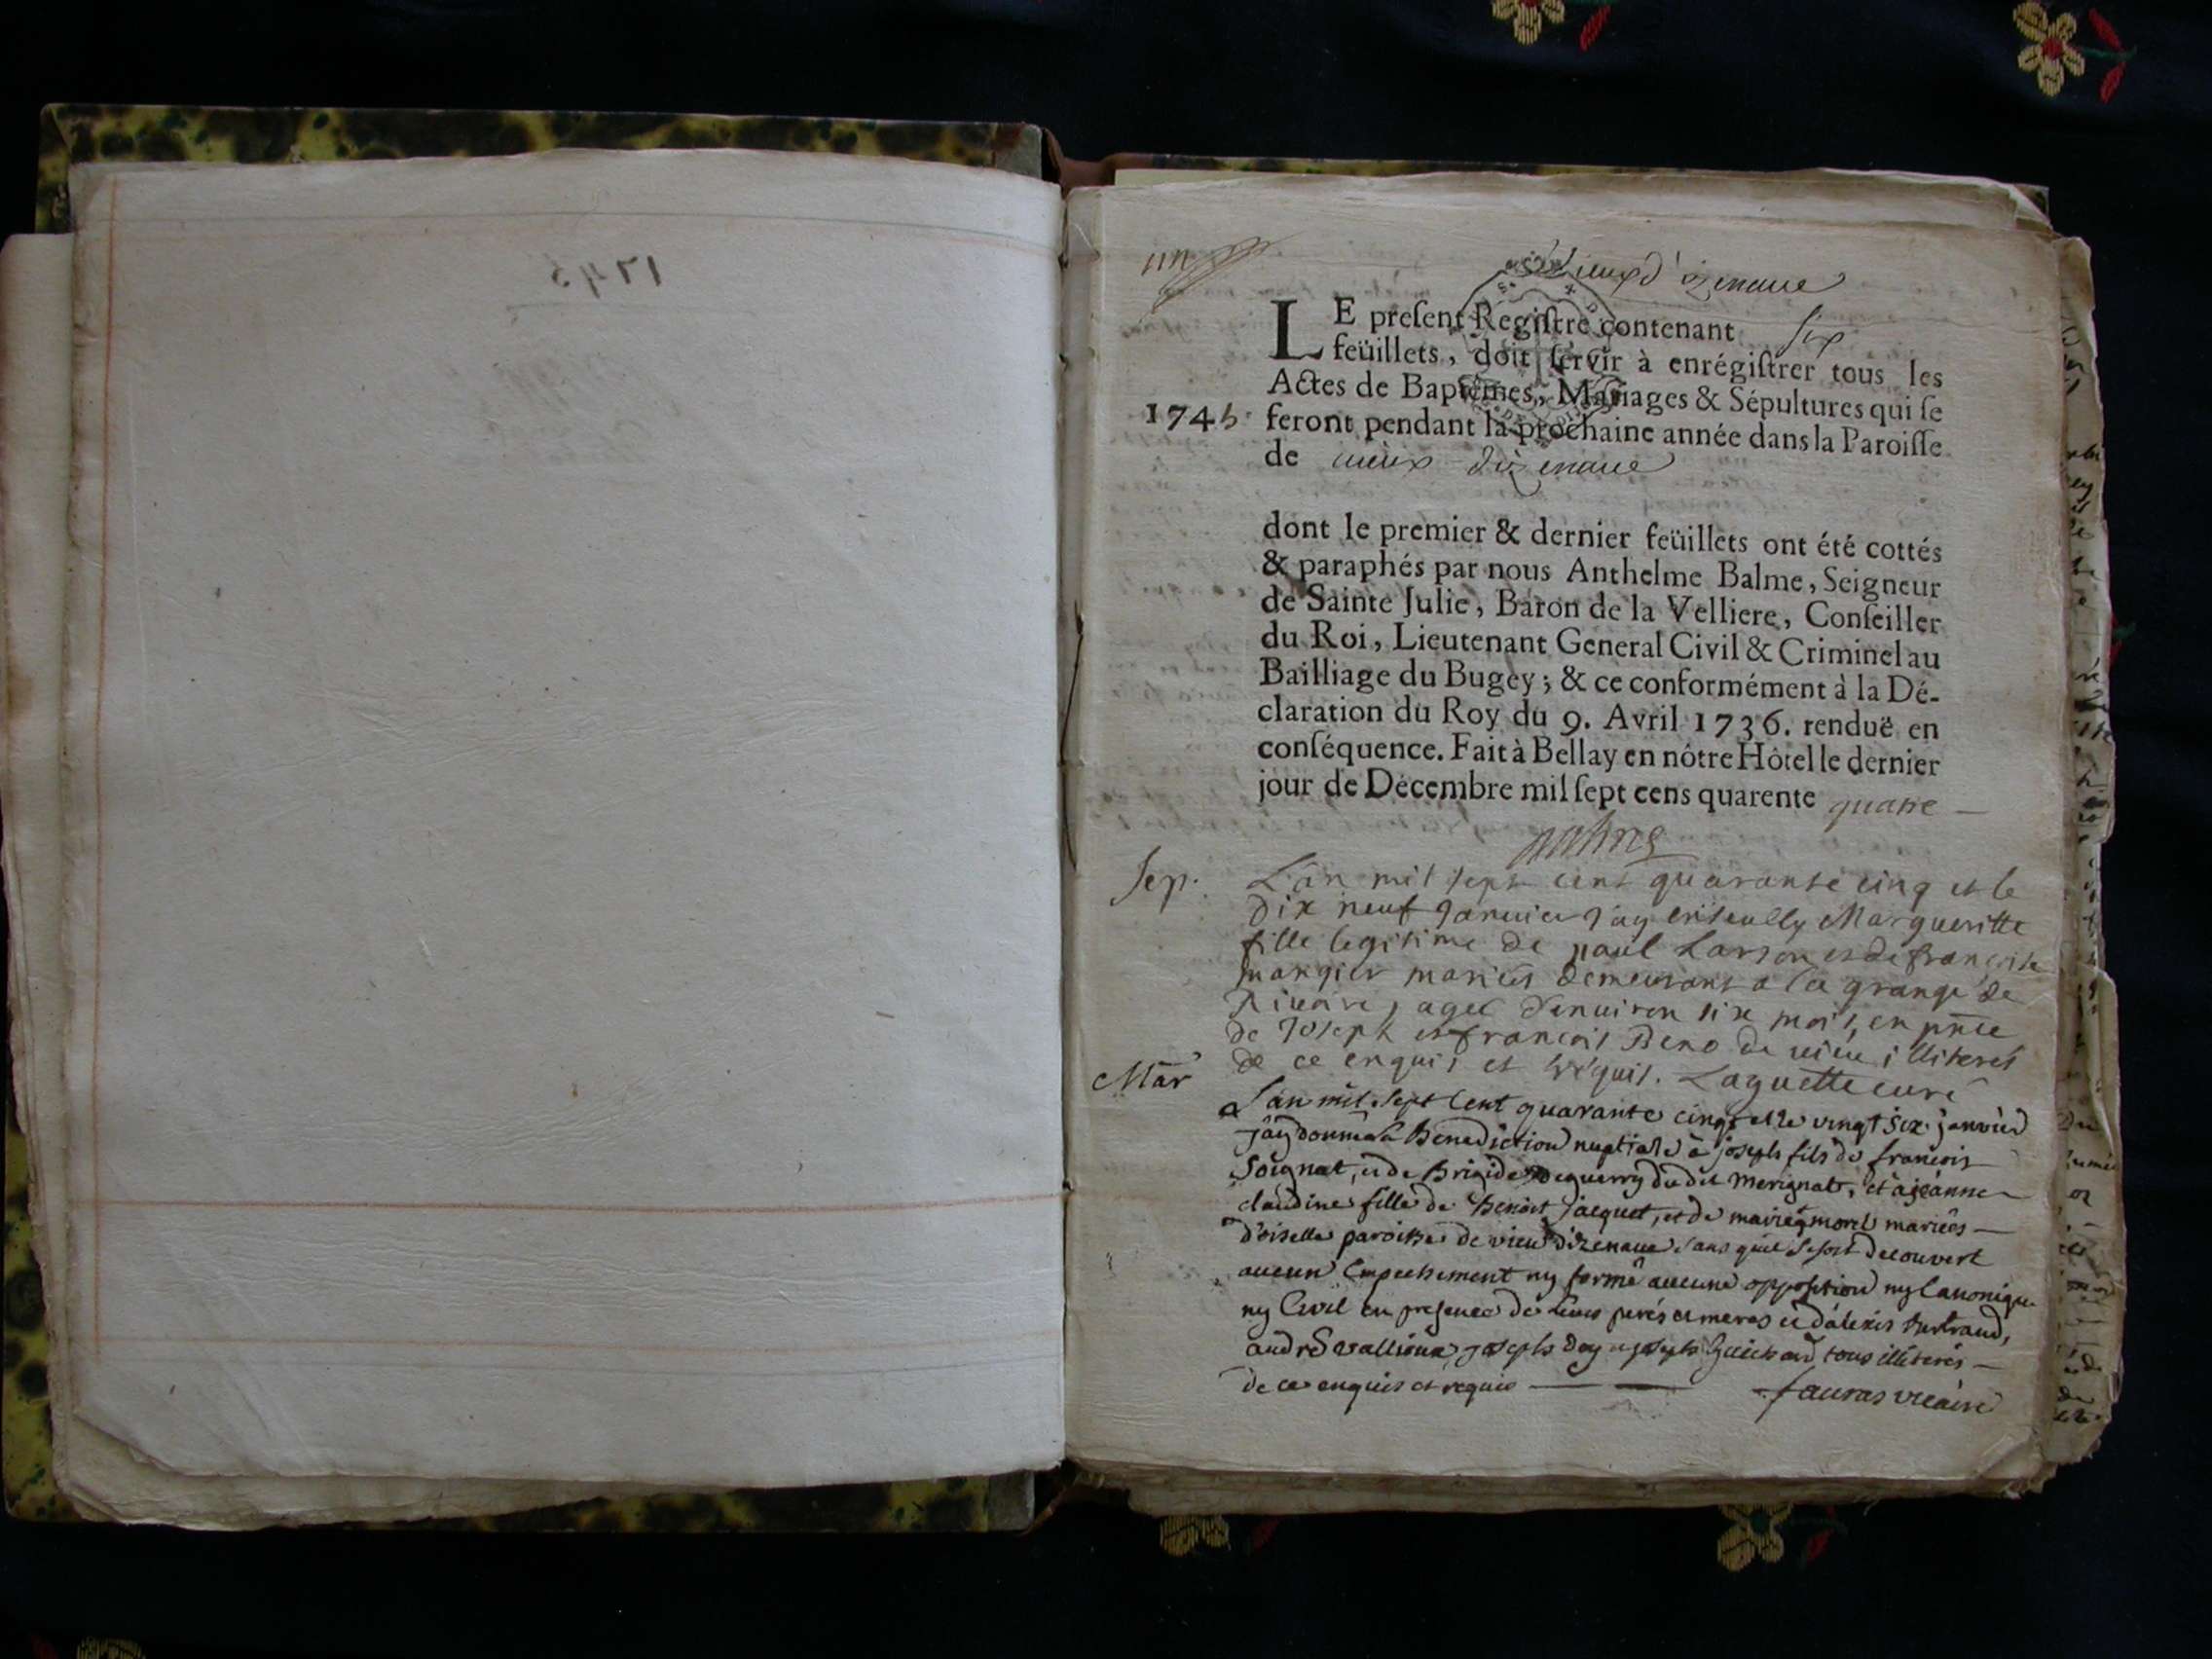 1745
un
Vieux d'izenave
LE preſent Regiſtre contenant six
feüillets, doit ſervir à enrégiſtrer tous les
Actes de Baptêmes, Mariages & Sépultures qui ſe
1745 feront pendant la prochaine année dans la Paroiſſe
de vieux d'izenave
dont le premier & dernier feüillets ont été cottés
& paraphés par nous Anthelme Balme, Seigneur
de Sainte Julie, Baron de la Velliere, Conſeiller
du Roi, Lieutenant General Civil & Criminel au
Bailliage du Bugey; & ce conformément à la Dé-
claration du Roy du 9. Avril 1736. renduë en
conſéquence. Fait à Bellay en nôtre Hôtel le dernier
jour de Décembre mil ſept cens quarente quatre
Balme
Sep. L'an mil sept cent quarante cinq et le
dix neuf Janvier j'ay enseuely Margueritte
fille legitime de paul Larson et de francoise
mangier mariés demeurant a la grange de
agee d'environ six mois, en pñce
de Joseph et francois Beno de vieu illiterés
de ce enquis et requis. Laguette curé
Mar L'an mil sept Cent quarante cinq et le vingt six janvier
j'ay donné la Benediction nuptiale à joseph fils de francois
Soignat, et de Brigide deguerry du dit Merignat, et à jeanne
claudine fille de Benoit jacquet, et de marie morel mariés
d'oiselle paroisse de vieu d'izenave sans qu'il se soit decouvert
aucun Empechement ny formé aucune opposition ny Canonique
ny Civil en presence de leurs perés et meres et d'alexis Bertraud,
andré vallioux, joseph et joseph Guichard tous illiterés
de ce enquis et requis fauras vicaire